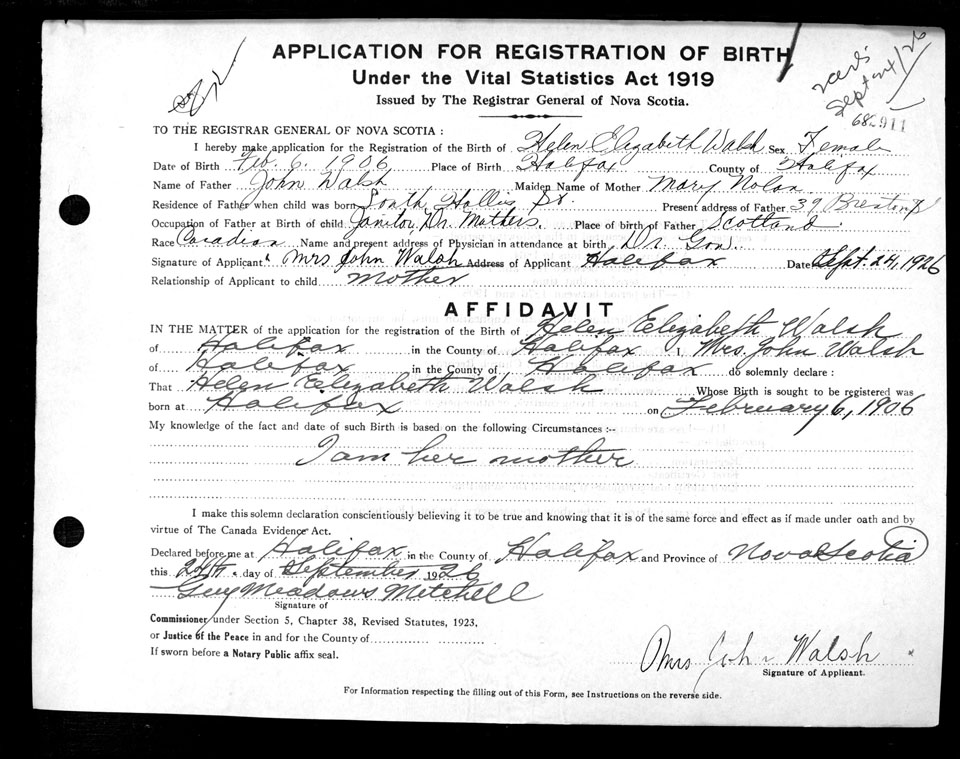 APPLICATION FOR REGISTRATION OF BIRTH
Under the Vital Statistics Act 1919
Issued by The Registrar General of Nova Scotia.
Sept 24/26
TO THE REGISTRAR GENERAL OF NOVA SCOTIA :
I hereby make application for the Registration of the Birth of Helen Elizabeth Walsh Sex Female
Date of Birth Feb. 6. 1906 Place of Birth Halifax County of Halifax
Name of Father John Walsh Maiden Name of Mother Mary Nolan
Residence of Father when child was born South Hollis St. Present address of Father 39
Occupation of Father at Birth of child Janitor Dr. Mathers. Place of birth of Father Scotland
Race Canadian Name and present address of Physician in attendance at birth Dr. Gow.
Signature of Applicant Mrs John Walsh Address of Applicant Halifax Date Sept. 24, 1926
Relationship of Applicant to child Mother
AFFIDAVIT
IN THE MATTER of the application for the registration of the Birth of Helen Elizabeth Walsh
of Halifax in the County of Halifax I, Mrs. John Walsh
of Halifax in the County of Halifax do solemnly declare :
That Helen Elizabeth Walsh Whose Birth is sought to be registered was
born at Halifax on February 6, 1906
My knowledge of the fact and date of such Birth is based on the following Circumstances :--
I am her mother
I make this solemn declaration conscientiously believing it to be true and knowing that it is of the same force and effect as if made under oath and by
virtue of The Canada Evidence Act.
Declared before me at Halifax in the County of Halifax and Province of Nova Scotia
this 24th day of September 1926
Guy Meadows Mitchell
Signature of
Commissioner under Section 5, Chapter 38, Revised Statutes, 1923,
or Justice of the Peace in and for the County of
If sworn before a Notary Public affix seal.
Mrs John Walsh
Signature of Applicant.
For Information respecting the filling out of this Form, see Instructions on the reverse side.